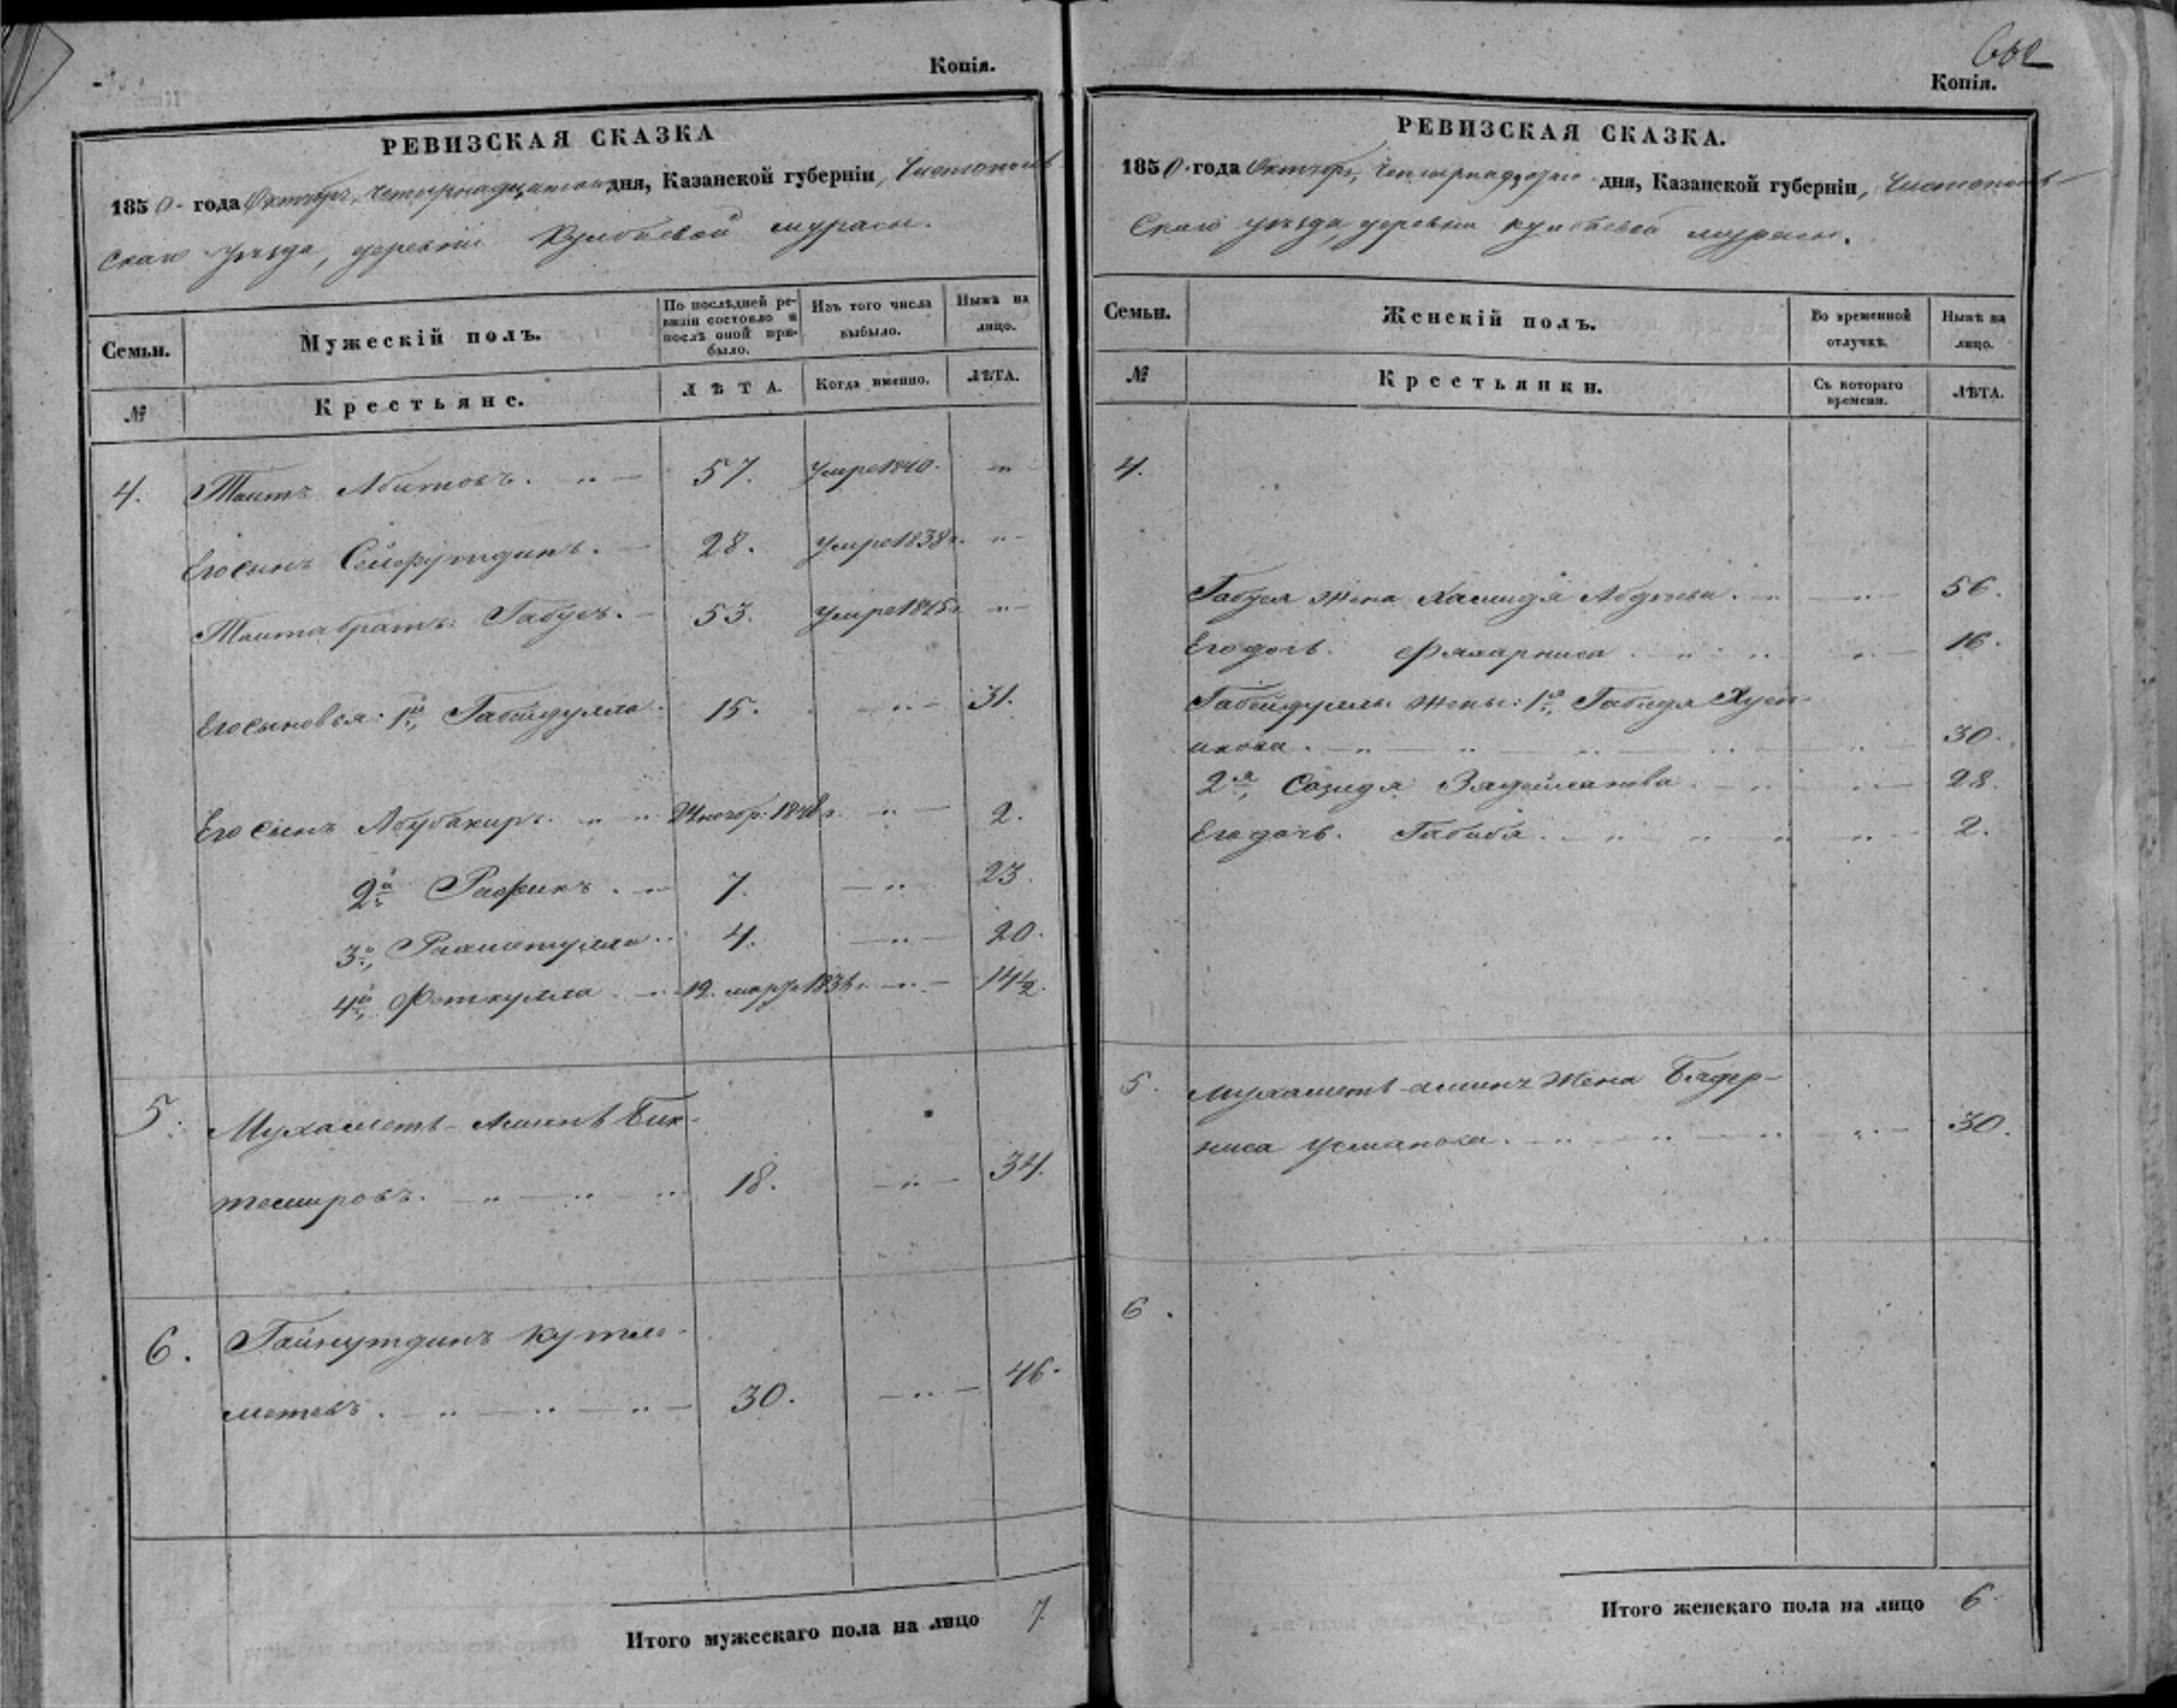 Копія.
РЕВИЗСКАЯ СКАЗКА
1850 года Октября четырнадцатаго дня, Казанской губерніи, Чистополь-
скаго уѣзда, деревни Кулбаевой мурасы.
Семьи.
Мужескій полъ.
По послѣдней ре-
визіи состояло и
послѣ оной при-
было.
Изъ того числа
выбыло.
Нынѣ на
лицо.
№
Крестьяне.
ЛѢТА.
Когда именно.
ЛѢТА.
4. Таитъ Абитовъ. 57. умре 1840. "
Его сынъ Сейфутдинъ. 28. умре 1838 г. "
Таита братъ: Габусъ. 53. умре 1845 г. "
Его сыновья: 1й, Габейдулла 15. " 31.
Его сынъ Абубакиръ. 1848 г. " 2.
2й Рафикъ. 7. " 23.
3й, Рахметулла 4. " 20.
4й, Фоткулла 12. марта 1836 г. " 14½.
5. Мухаметъ-Аминъ Бик-
темировъ. 18. " 34.
6. Гайнутдинъ Кутлу-
метевъ. 30. " 46.
Итого мужескаго пола на лицо 7
Копія.
РЕВИЗСКАЯ СКАЗКА.
1850 года Октября, четырнадцатаго дня, Казанской губерніи, Чистополь-
скаго уѣзда, деревни кулбаевой мурасы.
Семьи.
Женскій полъ.
Во временной
отлучкѣ.
Нынѣ на
лицо.
№
Крестьянки.
Съ котораго
времени.
ЛѢТА.
4.
Габуса жена Хамидя 56.
Его дочь. 16.
Габейдуллы жены: 1я, Габидя Хусе-
инова. 30.
2я, Сазидя 28.
Его дочь. Габибя 2.
5. Мухаметъ-аминъ жена Бядер-
ниса Усманова. 30.
6.
Итого женскаго пола на лицо 6